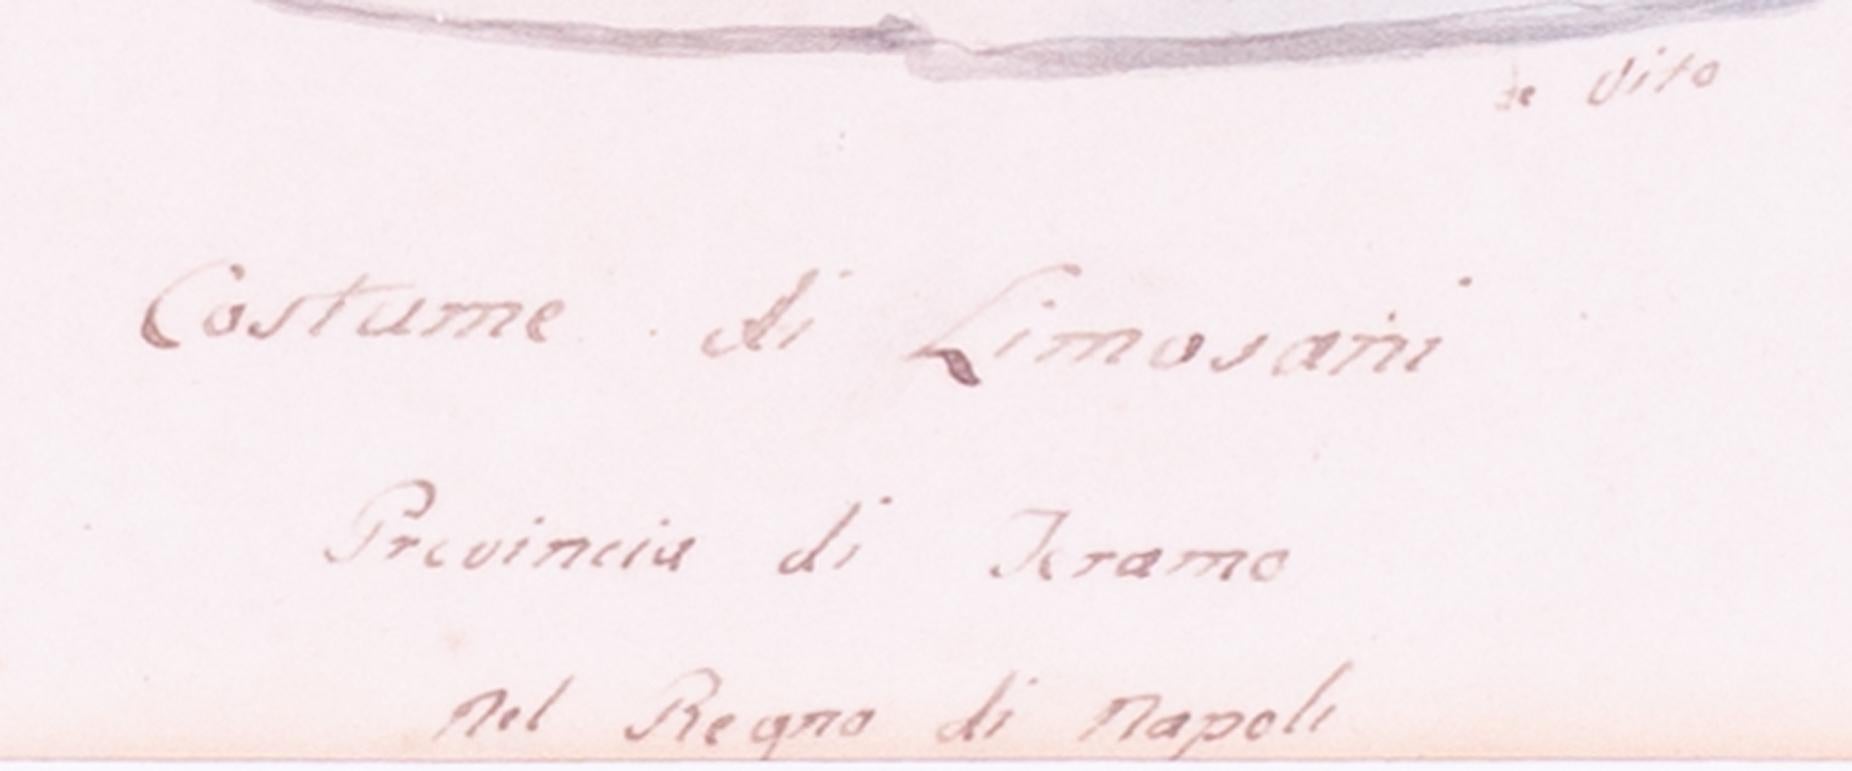 de Vito
Costume di Limosani
Provincia di Teramo
nel Regno di Napoli